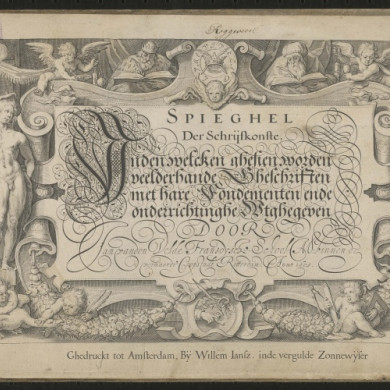 SPIEGHEL
Der Schrijfkonste,
Inden welcken ghesien worden
veelderhande Gheschriften
met hare Fondementen ende
onderrichtinghe Wtghegeven
DOOR
Jan vanden Velde
Ghedruckt tot Amsterdam, Bÿ Willem Iansz. inde vergulde Zonnewÿser